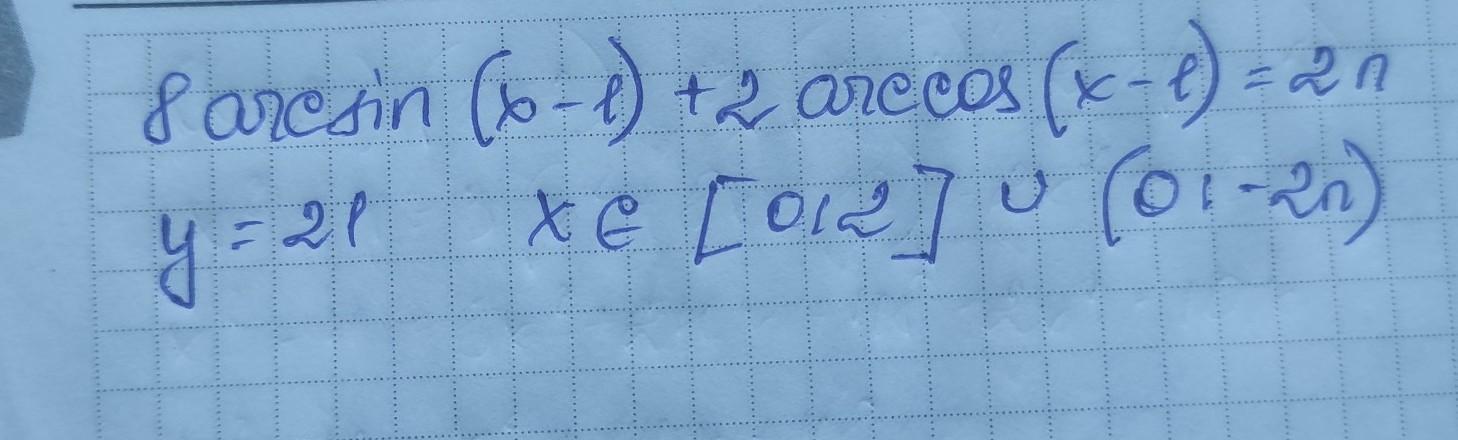 8 arcsin (x-1) + 2 arccos (x-1) = 2π
y = 21 x ∈ [0;2] ∪ (0; -2π)